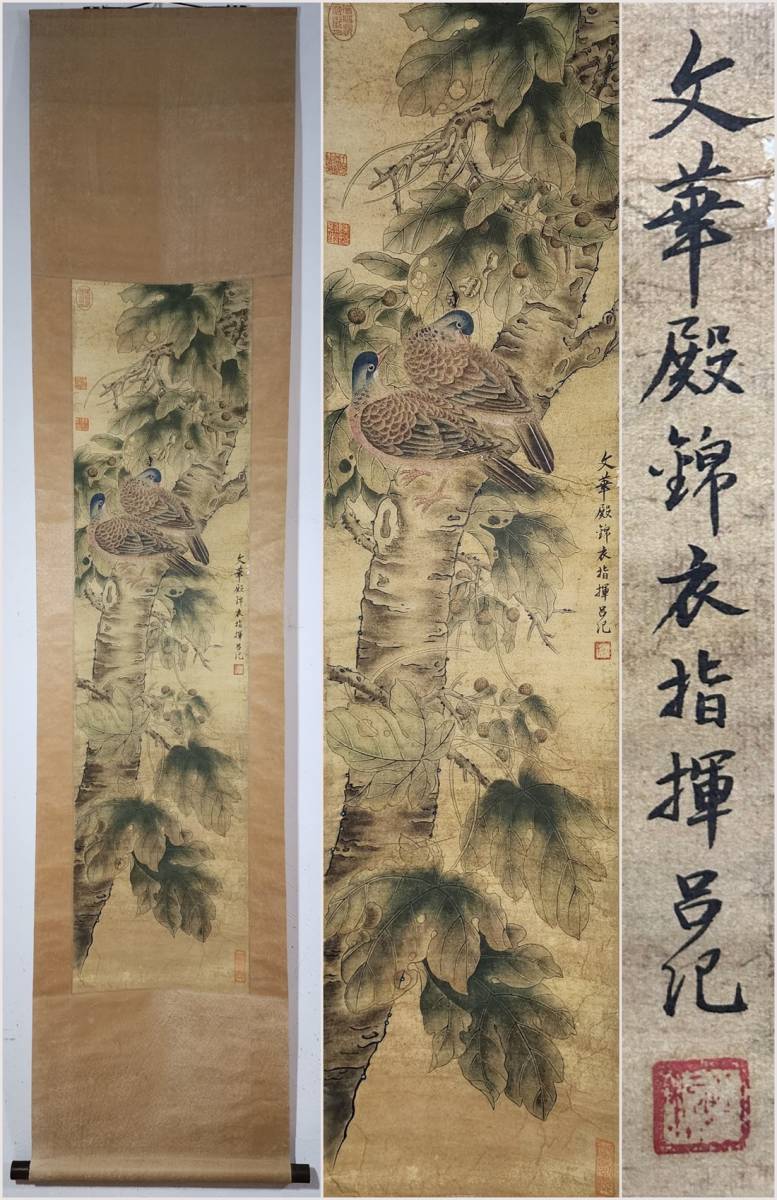 文華殿錦衣指揮呂紀
文華殿錦衣指揮呂紀
文華殿錦衣指揮呂紀